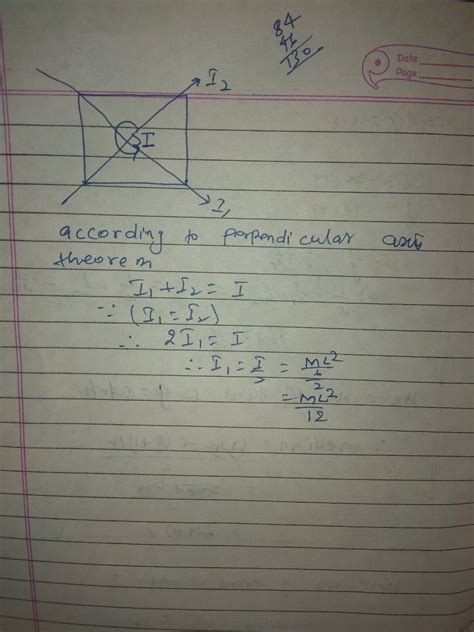 84
46
130
Date
Page
I₂
I
I₁
according to perpendicular axis
theorem
I₁ + I₂ = I
∵ (I₁ = I₂)
∴ 2I₁ = I
∴ I₁ = I/2 = ML²/6/2
= ML²/12